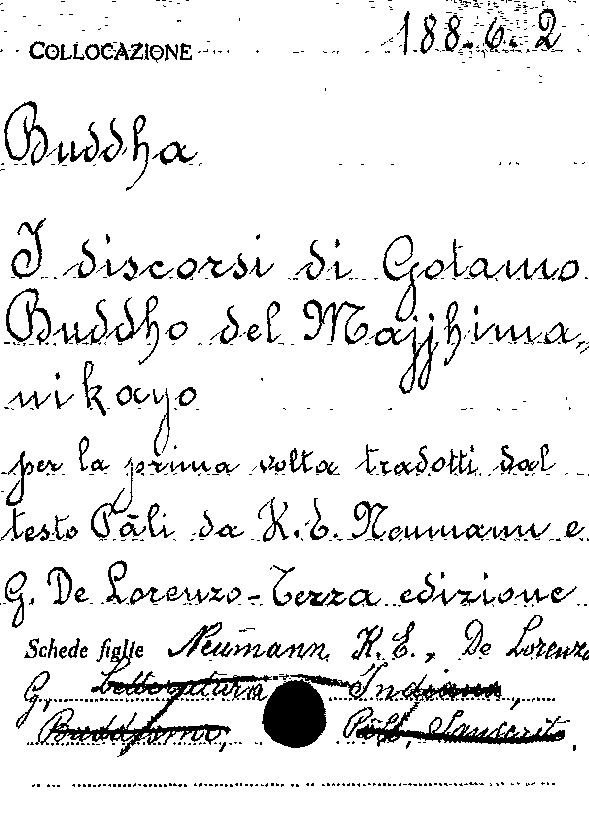 COLLOCAZIONE 188.6.2
Buddha
I discorsi di Gotamo
Buddho del Majjhima=
nikayo
per la prima volta tradotti dal
testo Pāli da K. E. Neumann e
G. De Lorenzo - Terza edizione
Schede figlie Neumann K. E., De Lorenzo
G., Letteratura Indiana,
Buddismo, Pāli, Sanscrito.